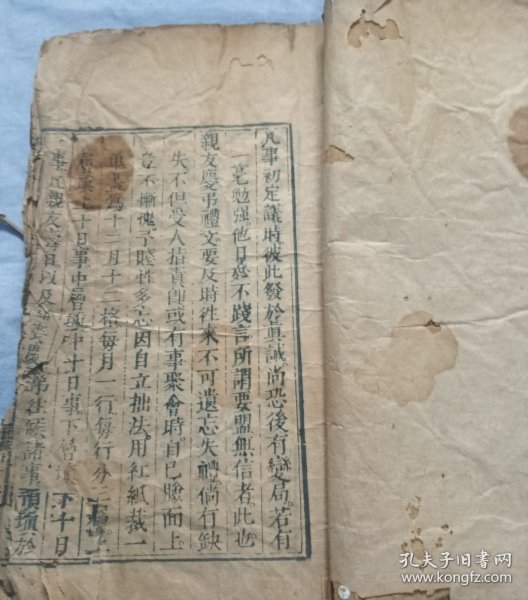 凡事初定議時彼此發於眞誠尚恐後有變局若有
一毫勉强他日必不踐言所謂要盟無信者此也
親友慶弔禮文要及時往來不可遺忘失禮倘有缺
失不但受人指責卽或有事聚會時自己臉面上
豈不慚愧予賦性多忘因自立拙法用紅紙裁一
爲十二月十二格每月一行每行分三
十日事中層
中十日事下層
下十日
事凡親友
日以及
慶弔往候諸事預填於
孔夫子旧书网
www.kongfz.com